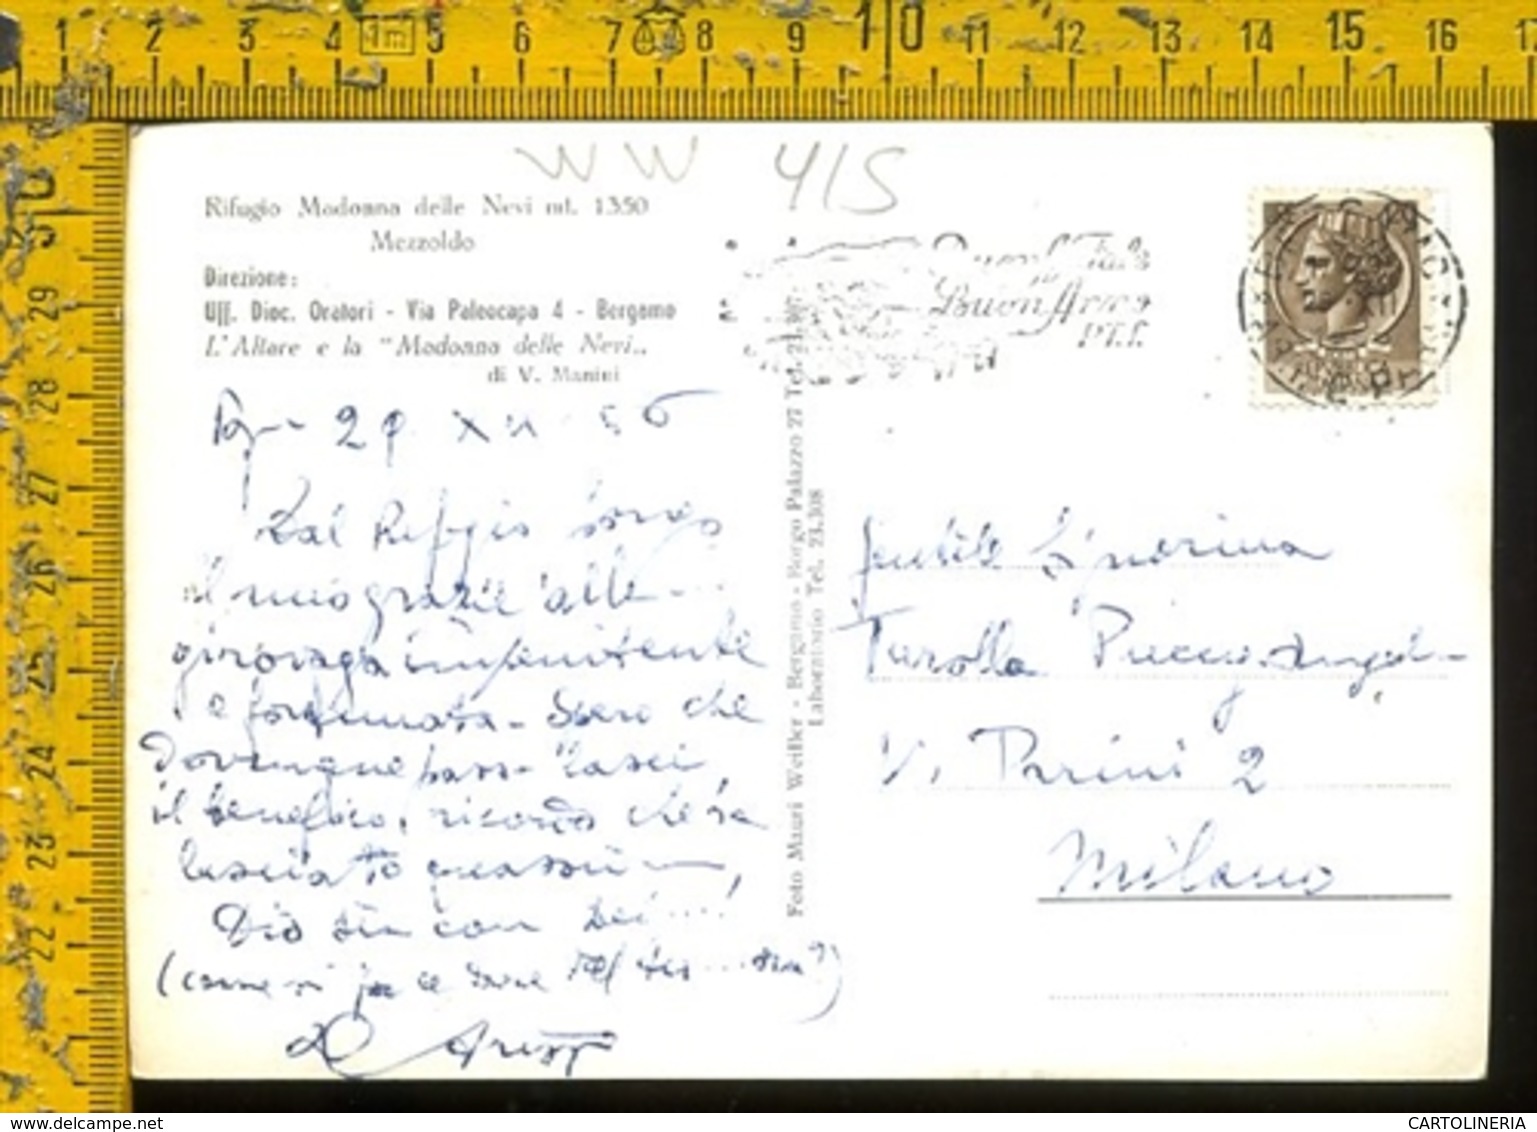 1 2 3 4 1m 5 6 7 8 9 10 11 12 13 14 15 16 17
WW 415
Rifugio Madonna delle Nevi mt. 1350
Mezzoldo
Direzione:
Uff. Dioc. Oratori - Via Paleocapa 4 - Bergamo
L'Altare e la "Madonna delle Nevi„
di V. Manini
Buon Natale
Buon Anno
P.T.T.
XII 56
Dal Rifugio
il mio grazie alla
girovaga impenitente
e fortunata - Spero che
Dovunque lasci
il benefico, ricordo che ha
lasciato quassù
Dio sia con Lei ....!
(come si fa a dire
Foto Mauri Weiller - Bergamo - Borgo Palazzo 27 Tel. 21.307
Laboratorio Tel. 23.308
Gentile Signorina
Turolla
V. Parini 2
Milano
30
29
28
27
26
25
24
23
22
CARTOLINERIA